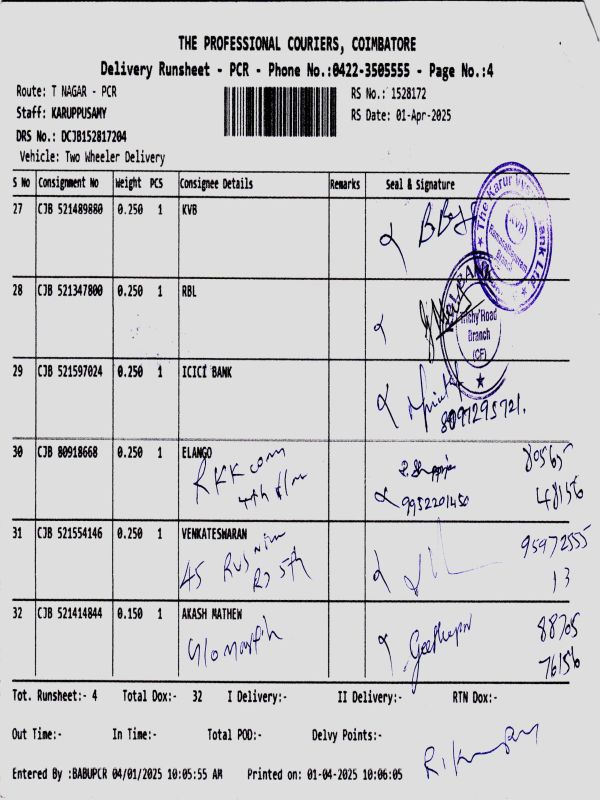 THE PROFESSIONAL COURIERS, COIMBATORE
Delivery Runsheet - PCR - Phone No.:0422-3505555 - Page No.:4
Route: T NAGAR - PCR
RS No.: 1528172
Staff: KARUPPUSAMY
RS Date: 01-Apr-2025
DRS No.: DCJB152817204
Vehicle: Two Wheeler Delivery
S No Consignment No Weight PCS Consignee Details Remarks Seal & Signature
27 CJB 521489880 0.250 1 KVB
The Karur Bank Ltd
KVB
Ramanathapuram
Branch
28 CJB 521347800 0.250 1 RBL
BANK
Trichy Road
Branch
(CF)
29 CJB 521597024 0.250 1 ICICI BANK
8097295721.
30 CJB 80918668 0.250 1 ELANGO
RKK com
4th flr
9952201450
80565
48156
31 CJB 521554146 0.250 1 VENKATESWARAN
45
95972555
13
32 CJB 521414844 0.150 1 AKASH MATHEW
88705
76156
Tot. Runsheet:- 4 Total Dox:- 32 I Delivery:- II Delivery:- RTN Dox:-
Out Time:- In Time:- Total POD:- Delvy Points:-
Entered By :BABUPCR 04/01/2025 10:05:55 AM Printed on: 01-04-2025 10:06:05